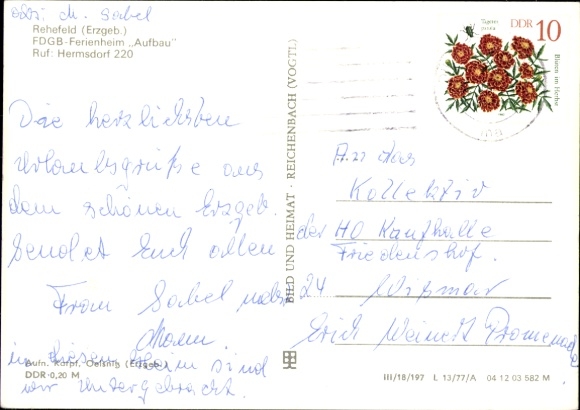 Abs.: M. Sabel
Rehefeld (Erzgeb.)
FDGB-Ferienheim „Aufbau"
Ruf: Hermsdorf 220
Die herzlichsten
Urlaubsgrüße aus
dem schönen Erzgeb.
sendet Euch allen
Frau Sabel nebst
Mann.
in diesem Heim sind
wir untergebracht.
Aufn. Karpf, Oelsnitz (Erzgeb.)
DDR 0,20 M
BILD UND HEIMAT · REICHENBACH (VOGTL)
Tagetes
patula
DDR 10
Blüten im Herbst
An das
Kollektiv
der HO Kaufhalle
Friedenshof.
24 Wismar
Erich Weinert Promenade
III/18/197 L 13/77/A 04 12 03 582 M